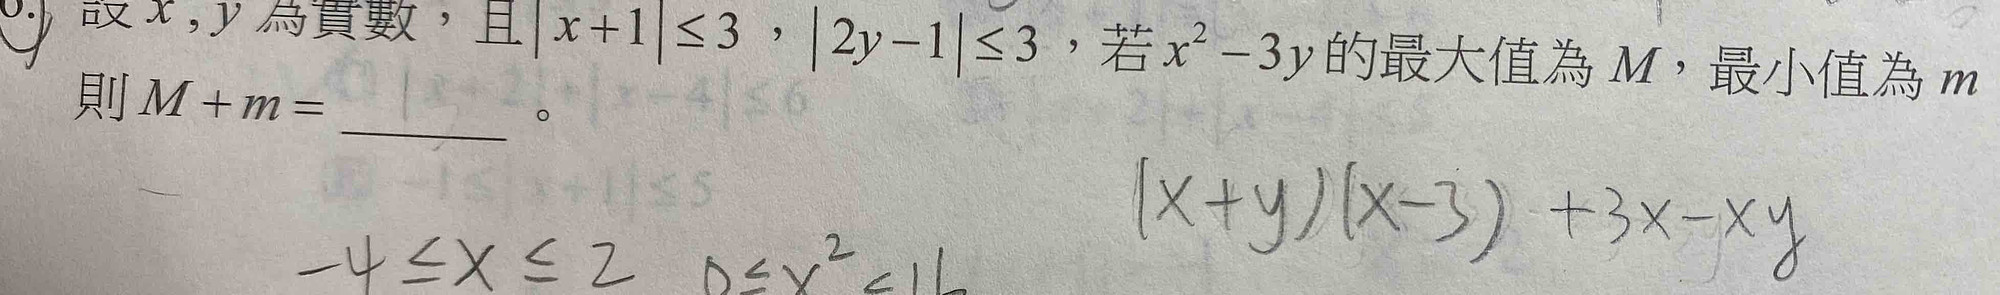 設 x , y 為實數，且|x+1|≤3，|2y−1|≤3，若 x²−3y 的最大值為 M，最小值為 m
則 M + m = ______ 。
(x+y)(x−3) +3x−xy
−4≤x≤2 0≤x²≤16